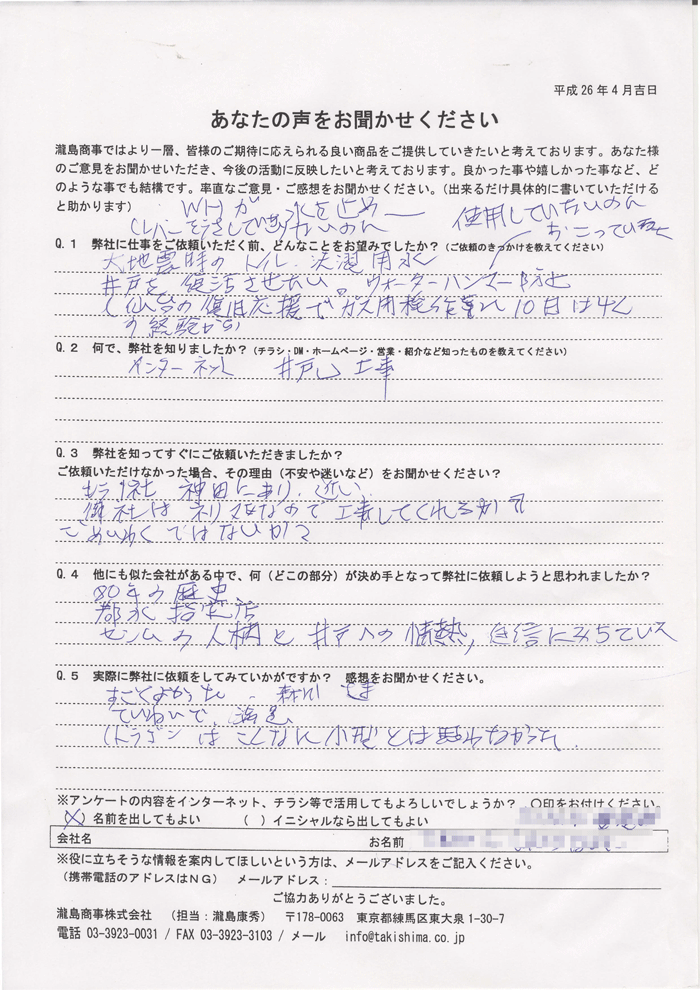 平成26年4月吉日
あなたの声をお聞かせください
瀧島商事ではより一層、皆様のご期待に応えられる良い商品をご提供していきたいと考えております。あなた様
のご意見をお聞かせいただき、今後の活動に反映したいと考えております。良かった事や嬉しかった事など、ど
のような事でも結構です。率直なご意見・ご感想をお聞かせください。（出来るだけ具体的に書いていただける
と助かります）
WHが 水を止め
使用していないのん
Q.1 弊社に仕事をご依頼いただく前、どんなことをお望みでしたか？（ご依頼のきっかけを教えてください）
大地震時のトイレ・洗濯用水
井戸を復活させたい。ウォーターハンマー防止
（仙台の復旧応援でガス開栓作業 10日
の経験から）
Q.2 何で、弊社を知りましたか？（チラシ・DM・ホームページ・営業・紹介など知ったものを教えてください）
インターネット 井戸 工事
Q.3 弊社を知ってすぐにご依頼いただきましたか？
ご依頼いただけなかった場合、その理由（不安や迷いなど）をお聞かせください？
もう1社 神田にあり、近い
御社はネリマなので工事してくれるか？
ごめいわくではないか？
Q.4 他にも似た会社がある中で、何（どこの部分）が決め手となって弊社に依頼しようと思われましたか？
80年の歴史
都水指定店
センムの人柄と井戸への情熱，自信にみちていた
Q.5 実際に弊社に依頼をしてみていかがですか？ 感想をお聞かせください。
すごくよかった 森川
ていねいで、満足
（ドラゴンはこんなに小型とは思わなかった
※アンケートの内容をインターネット、チラシ等で活用してもよろしいでしょうか？ 〇印をお付けください。
（×）名前を出してもよい （ ）イニシャルなら出してもよい
会社名 お名前
※役に立ちそうな情報を案内してほしいという方は、メールアドレスをご記入ください。
（携帯電話のアドレスはNG） メールアドレス：
ご協力ありがとうございました。
瀧島商事株式会社 （担当：瀧島康秀） 〒178-0063 東京都練馬区東大泉1-30-7
電話 03-3923-0031 / FAX 03-3923-3103 / メール info@takishima.co.jp